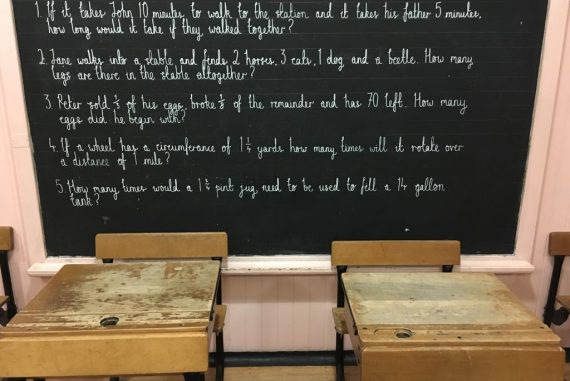 1. If it takes John 10 minutes to walk to the station and it takes his father 5 minutes,
how long would it take if they walked together?
2. Jane walks into a stable and finds 2 horses, 3 cats, 1 dog and a beetle. How many
legs are there in the stable altogether?
3. Peter sold of his eggs, broke of the remainder and has 70 left. How many
eggs did he begin with?
4. If a wheel has a circumferance of 1 1/4 yards how many times will it rotate over
a distance of 1 mile?
5. How many times would a pint jug need to be used to fill a 14 gallon
tank?